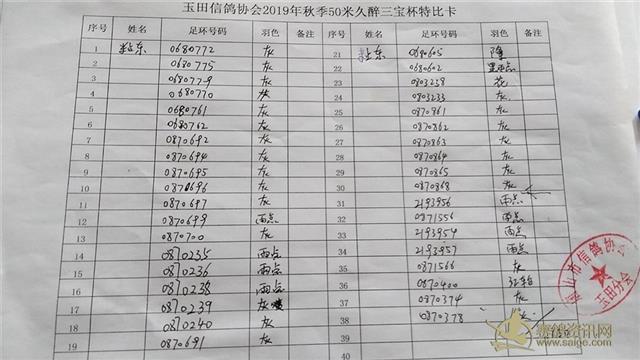 玉田信鸽协会2019年秋季50米久醉三宝杯特比卡
序号 姓名 足环号码 羽色 备注 序号 姓名 足环号码 羽色 备注
1 东 0680772 灰 21 东 0680605
2 0680775 灰 22 0680602
3 0680779 灰 23 0803238 花
4 0680770 灰 24 0803233 灰
5 0680761 灰 25 0870861 灰
6 0680762 灰 26 0870862 灰
7 0870692 灰 27 0870863 灰
8 0870694 灰 28 0870864 灰
9 0870695 灰 29 0870865 灰
10 0870696 灰 30 0870868 灰
11 0870697 灰 31 2193956 雨点
12 0870699 雨点 32 0871556 雨点
13 0870700 灰 33 2193954 雨点
14 0870235 雨点 34 2193957 雨点
15 0870236 雨点 35 0871566 灰
16 0870238 雨点 36 0870400
17 0870239 灰 37 0870374 灰
18 0870240 灰 38 0870378 灰
19 0870691 灰 39
40
唐山市信鸽协会
玉田分会
赛鸽资讯网
www.saige.com